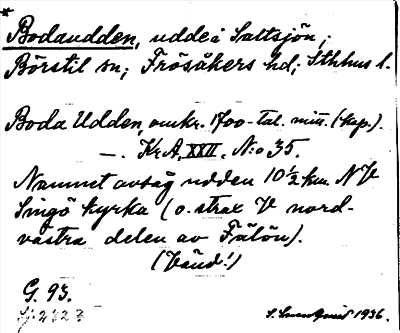 *
Bodaudden, udde i Saltsjön,;
Börstil sn; Frösåkers hd; Sthlms l.
Boda Udden, omkr. 1700-tal. mitt. (kop.).
—. Kr.A, XXII. N:o 35.
Namnet avsåg udden 10 1/2 km. NV
Singö kyrka (o. strax V nord-
västra delen av Fälön).
(Vänd!)
G. 93.
1936.